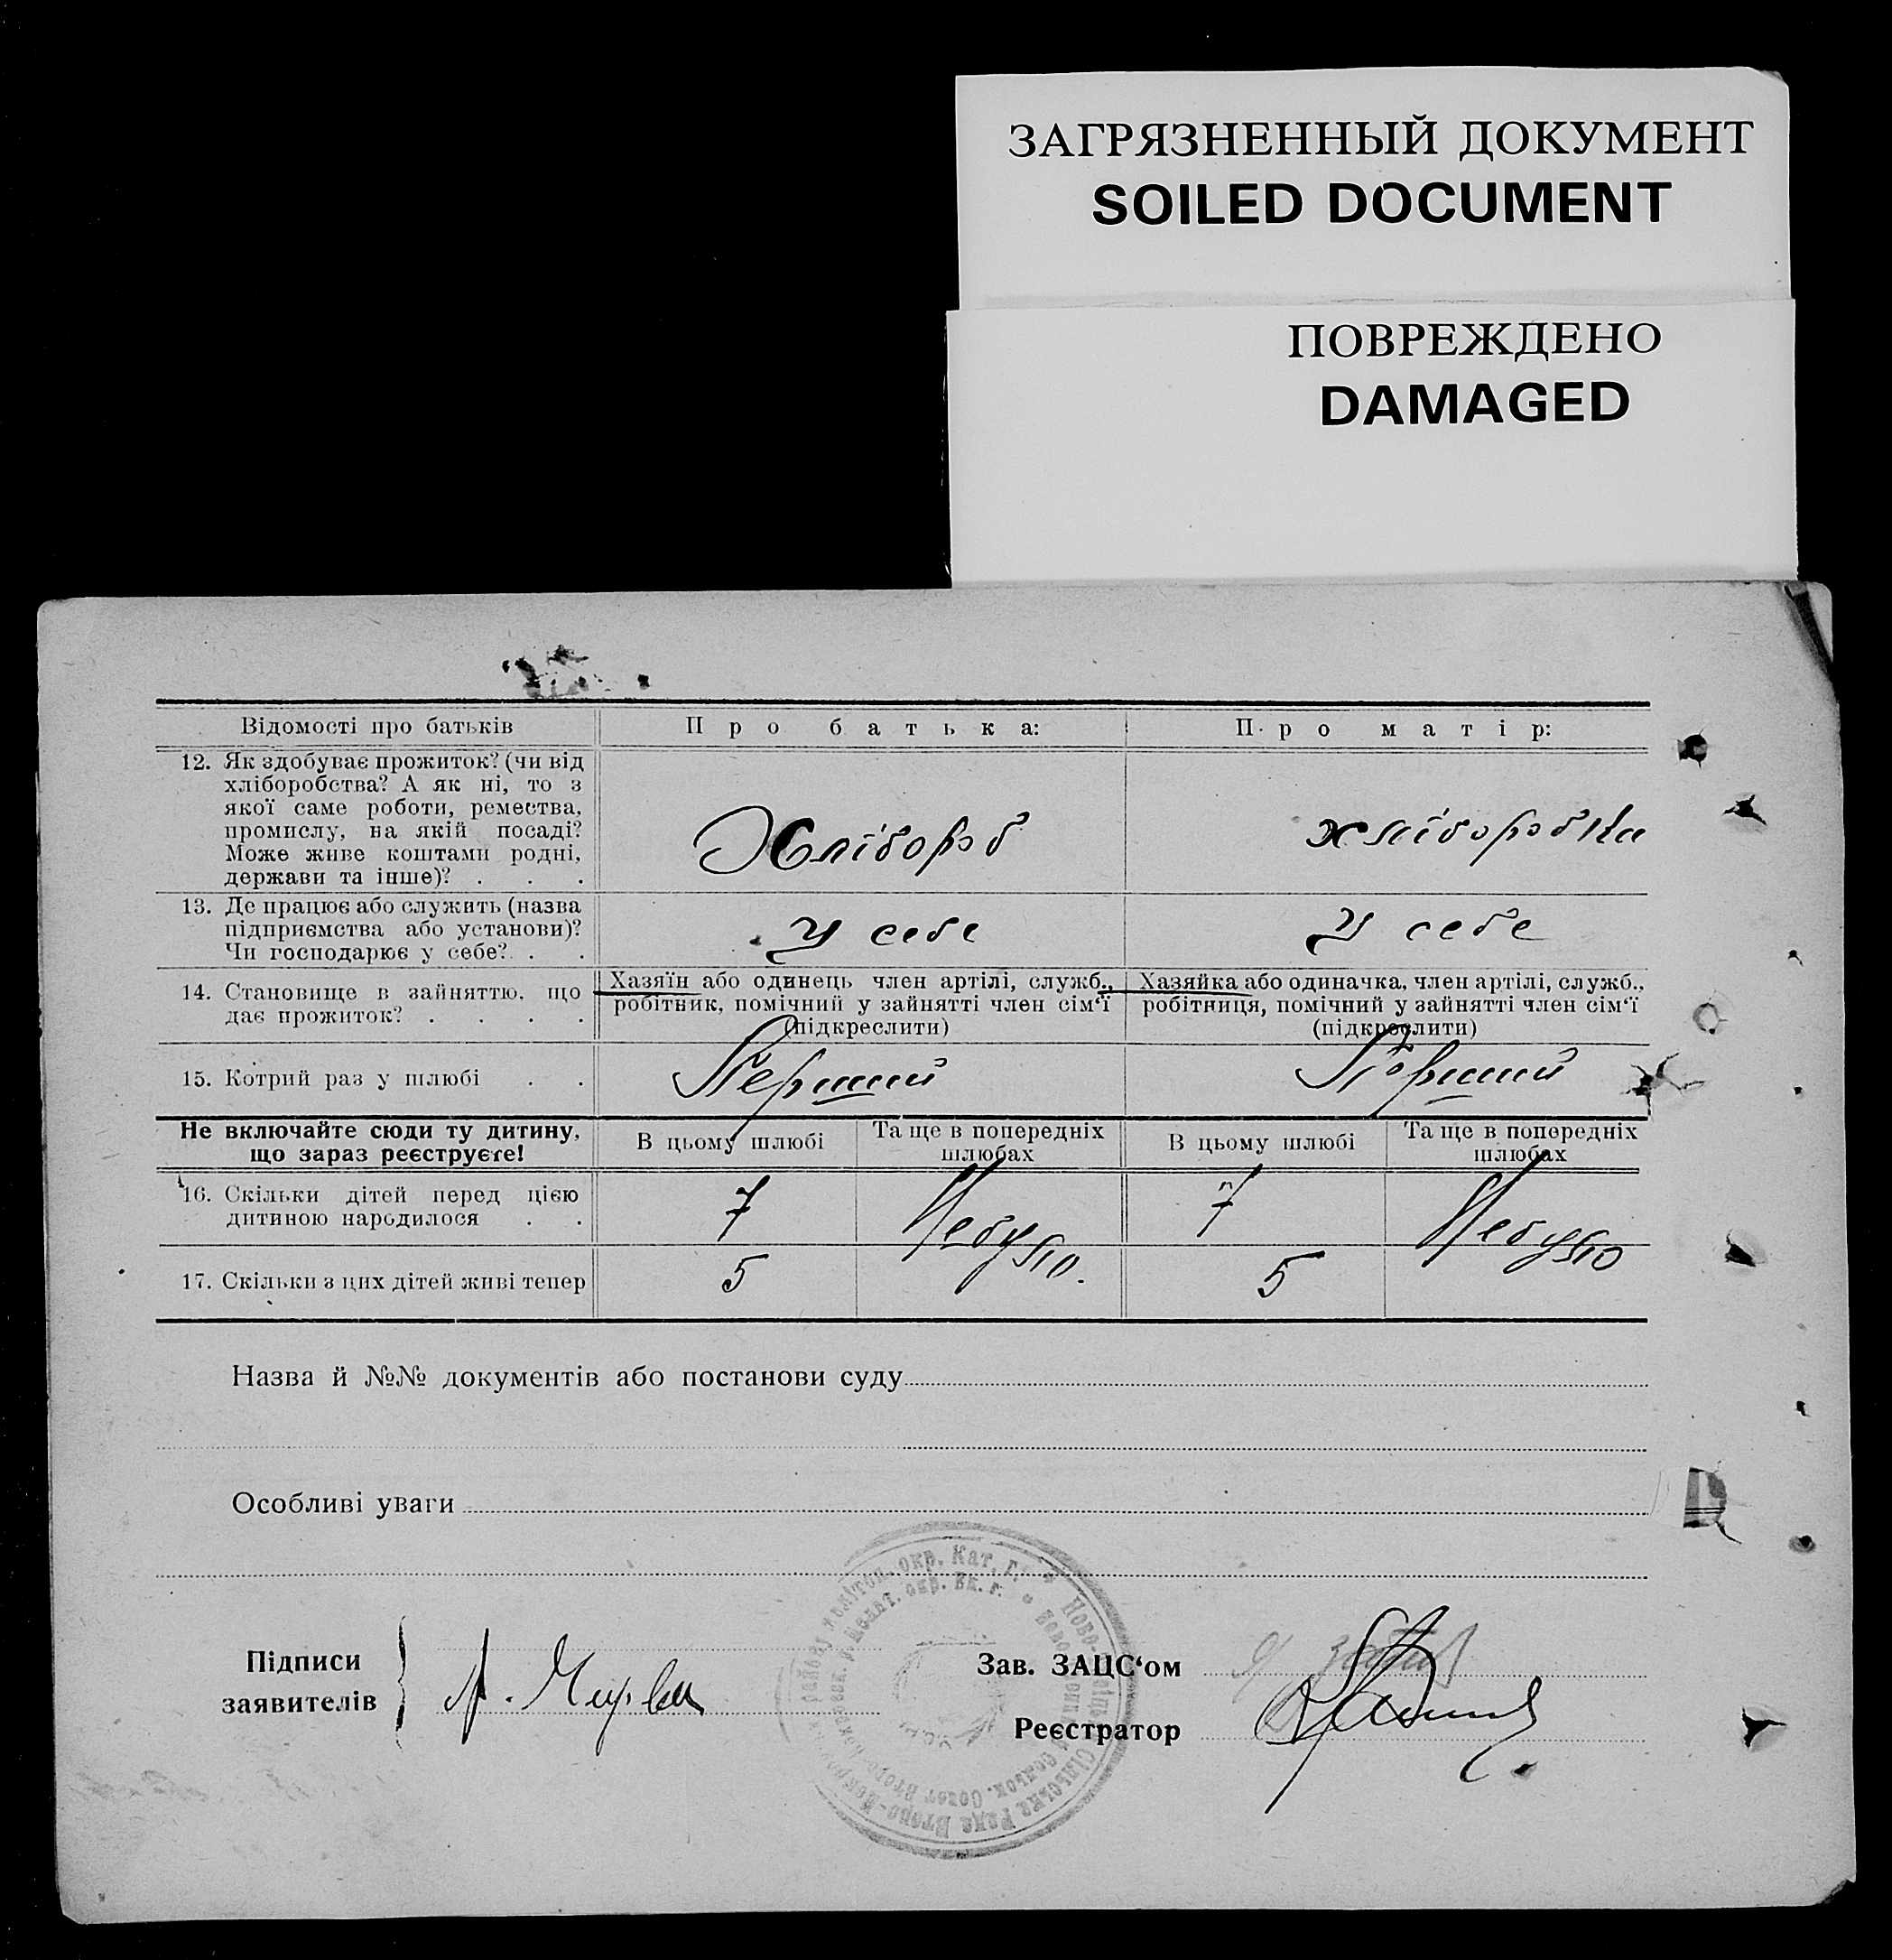 ЗАГРЯЗНЕННЫЙ ДОКУМЕНТ
SOILED DOCUMENT
ПОВРЕЖДЕНО
DAMAGED
Відомості про батьків
Про батька:
Про матір:
12. Як здобуває прожиток? (чи від
хліборобства? А як ні, то з
якої саме роботи, ремества,
промислу, на якій посаді?
Може живе коштами родні,
держави та інше)? . . .
Хлібороб
хліборобка
13. Де працює або служить (назва
підприємства або установи)?
Чи господарює у себе? . .
У себе
У себе
14. Становище в зайняттю, що
дає прожиток? . . . .
Хазяїн або одинець член артілі, служб.,
робітник, помічний у зайнятті член сім‘ї
(підкреслити)
Хазяйка або одиначка, член артілі, служб.,
робітниця, помічний у зайнятті член сім‘ї
(підкреслити)
15. Котрий раз у шлюбі . .
Перший
Перший
Не включайте сюди ту дитину,
що зараз реєструєте!
В цьому шлюбі
Та ще в попередніх
шлюбах
В цьому шлюбі
Та ще в попередніх
шлюбах
16. Скільки дітей перед цією
дитиною народилося . .
7
Небуло.
7
Небуло
17. Скільки з цих дітей живі тепер
5
5
Назва й №№ документів або постанови суду
Особливі уваги
Підписи
заявителів
Зав. ЗАЦС‘ом
Реєстратор
окр. Кат. Г.
Сільська Рада